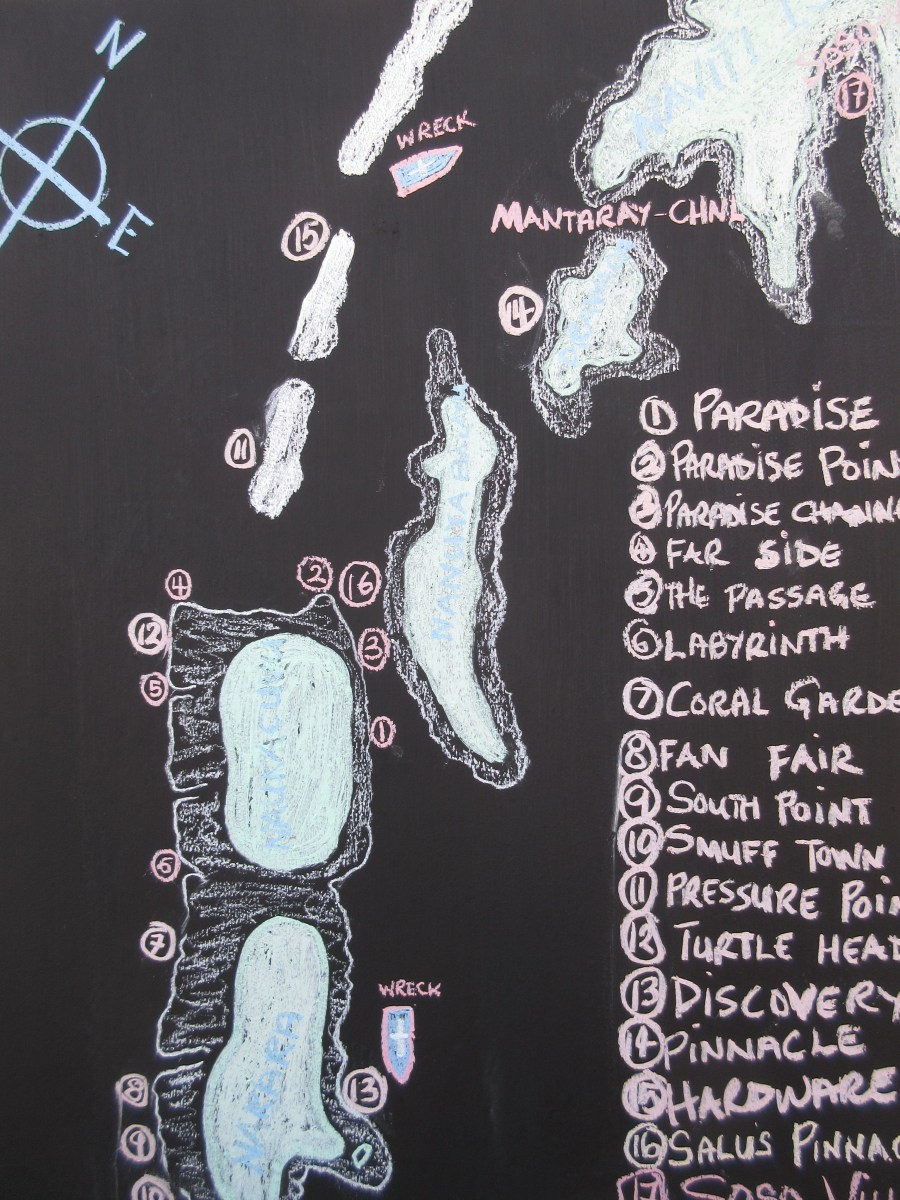 N
E
WRECK
NAVITI
17
MANTARAY-CHNL
15
14
11
4
2
16
12
3
5
1
6
7
WRECK
8
13
9
10
1 PARADISE
2 PARADISE POIN
3 PARADISE CHANN
4 FAR SIDE
5 THE PASSAGE
6 LABYRINTH
7 CORAL GARDE
8 FAN FAIR
9 SOUTH POINT
10 SMUFF TOWN
11 PRESSURE POIN
12 TURTLE HEAD
13 DISCOVERY
14 PINNACLE
15 HARDWARE
16 SALUS PINNAC
17 SOSO